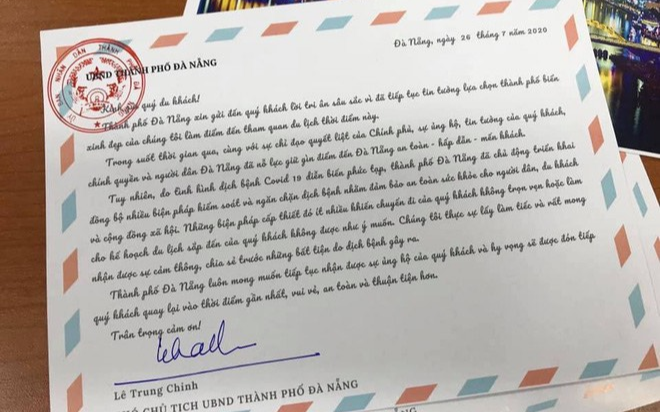 Đà Nẵng, ngày 26 tháng 7 năm 2020
UBND THÀNH PHỐ ĐÀ NẴNG
Kính gửi quý du khách!
Thành phố Đà Nẵng xin gửi đến quý khách lời tri ân sâu sắc vì đã tiếp tục tin tưởng lựa chọn thành phố biển
xinh đẹp của chúng tôi làm điểm đến tham quan du lịch thời điểm này.
Trong suốt thời gian qua, cùng với sự chỉ đạo quyết liệt của Chính phủ, sự ủng hộ, tin tưởng của quý khách,
chính quyền và người dân Đà Nẵng đã nỗ lực giữ gìn điểm đến Đà Nẵng an toàn - hấp dẫn - mến khách.
Tuy nhiên, do tình hình dịch bệnh Covid 19 diễn biến phức tạp, thành phố Đà Nẵng đã chủ động triển khai
đồng bộ nhiều biện pháp kiểm soát và ngăn chặn dịch bệnh nhằm đảm bảo an toàn sức khỏe cho người dân, du khách
và cộng đồng xã hội. Những biện pháp cấp thiết đó ít nhiều khiến chuyến đi của quý khách không trọn vẹn hoặc làm
cho kế hoạch du lịch sắp đến của quý khách không được như ý muốn. Chúng tôi thực sự lấy làm tiếc và rất mong
nhận được sự cảm thông, chia sẻ trước những bất tiện do dịch bệnh gây ra.
Thành phố Đà Nẵng luôn mong muốn tiếp tục nhận được sự ủng hộ của quý khách và hy vọng sẽ được đón tiếp
quý khách quay lại vào thời điểm gần nhất, vui vẻ, an toàn và thuận tiện hơn.
Trân trọng cảm ơn!
Lê Trung Chinh
PHÓ CHỦ TỊCH UBND THÀNH PHỐ ĐÀ NẴNG